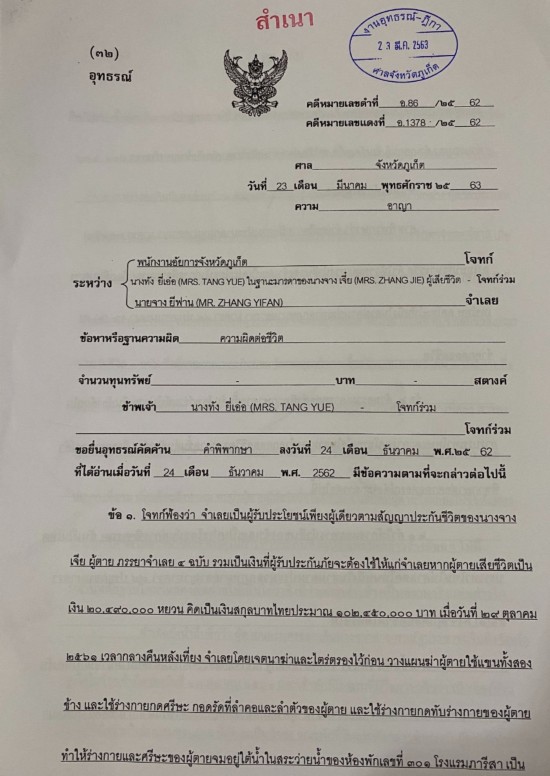 สำเนา
งานอุทธรณ์-ฎีกา
23 มี.ค. 2563
ศาลจังหวัดภูเก็ต
(๓๒)
อุทธรณ์
คดีหมายเลขดำที่ อ.86 /๒๕ 62
คดีหมายเลขแดงที่ อ.1378 /๒๕ 62
ศาล จังหวัดภูเก็ต
วันที่ 23 เดือน มีนาคม พุทธศักราช ๒๕ 63
ความ อาญา
พนักงานอัยการจังหวัดภูเก็ต โจทก์
ระหว่าง นางทัง ยี่เย่อ (MRS. TANG YUE) ในฐานะมารดาของนางจาง เจี๋ย (MRS. ZHANG JIE) ผู้เสียชีวิต - โจทก์ร่วม
นายจาง ยีฟาน (MR. ZHANG YIFAN) จำเลย
ข้อหาหรือฐานความผิด ความผิดต่อชีวิต
จำนวนทุนทรัพย์ - บาท - สตางค์
ข้าพเจ้า นางทัง ยี่เย่อ (MRS. TANG YUE) - โจทก์ร่วม
โจทก์ร่วม
ขอยื่นอุทธรณ์คัดค้าน คำพิพากษา ลงวันที่ 24 เดือน ธันวาคม พ.ศ.๒๕ 62
ที่ได้อ่านเมื่อวันที่ 24 เดือน ธันวาคม พ.ศ. 2562 มีข้อความตามที่จะกล่าวต่อไปนี้
ข้อ ๑. โจทก์ฟ้องว่า จำเลยเป็นผู้รับประโยชน์เพียงผู้เดียวตามสัญญาประกันชีวิตของนางจาง
เจีย ผู้ตาย ภรรยาจำเลย ๔ ฉบับ รวมเป็นเงินที่ผู้รับประกันภัยจะต้องใช้ให้แก่จำเลยหากผู้ตายเสียชีวิตเป็น
เงิน ๒๐,๔๙๐,๐๐๐ หยวน คิดเป็นเงินสกุลบาทไทยประมาณ ๑๐๒,๔๕๐,๐๐๐ บาท เมื่อวันที่ ๒๙ ตุลาคม
๒๕๖๑ เวลากลางคืนหลังเที่ยง จำเลยโดยเจตนาฆ่าและไตร่ตรองไว้ก่อน วางแผนฆ่าผู้ตายใช้แขนทั้งสอง
ข้าง และใช้ร่างกายกดศรีษะ กอดรัดที่ลำคอและลำตัวของผู้ตาย และใช้ร่างกายกดทับร่างกายของผู้ตาย
ทำให้ร่างกายและศรีษะของผู้ตายจมอยู่ใต้น้ำในสระว่ายน้ำของห้องพักเลขที่ ๓๐๑ โรงแรมภารีสา เป็น